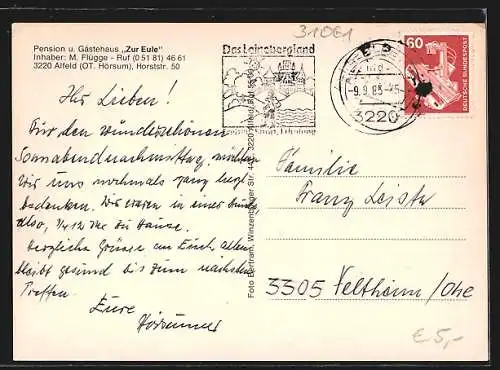 Pension u. Gästehaus „Zur Eule"
Inhaber: M. Flügge - Ruf (0 51 81) 46 61
3220 Alfeld (OT. Hörsum), Horststr. 50
31061
Das Leinebergland
60
DEUTSCHE BUNDESPOST
-9.9.83
3220
Ihr Lieben!
Für den wunderschönen
Sonnabendnachmittag, möchten
wir uns nochmals ganz herzl.
bedanken. Wir waren in einer
also, 1/4 12 Uhr zu Hause.
Herzliche Grüsse an Euch allen
bleibt gesund bis zum nächsten
Treffen.
Eure
Foto Bertram, Winzenburger Str. 3220 Alfeld
Familie
Franz Leiste
3305 Veltheim/Ohe
€ 5,-